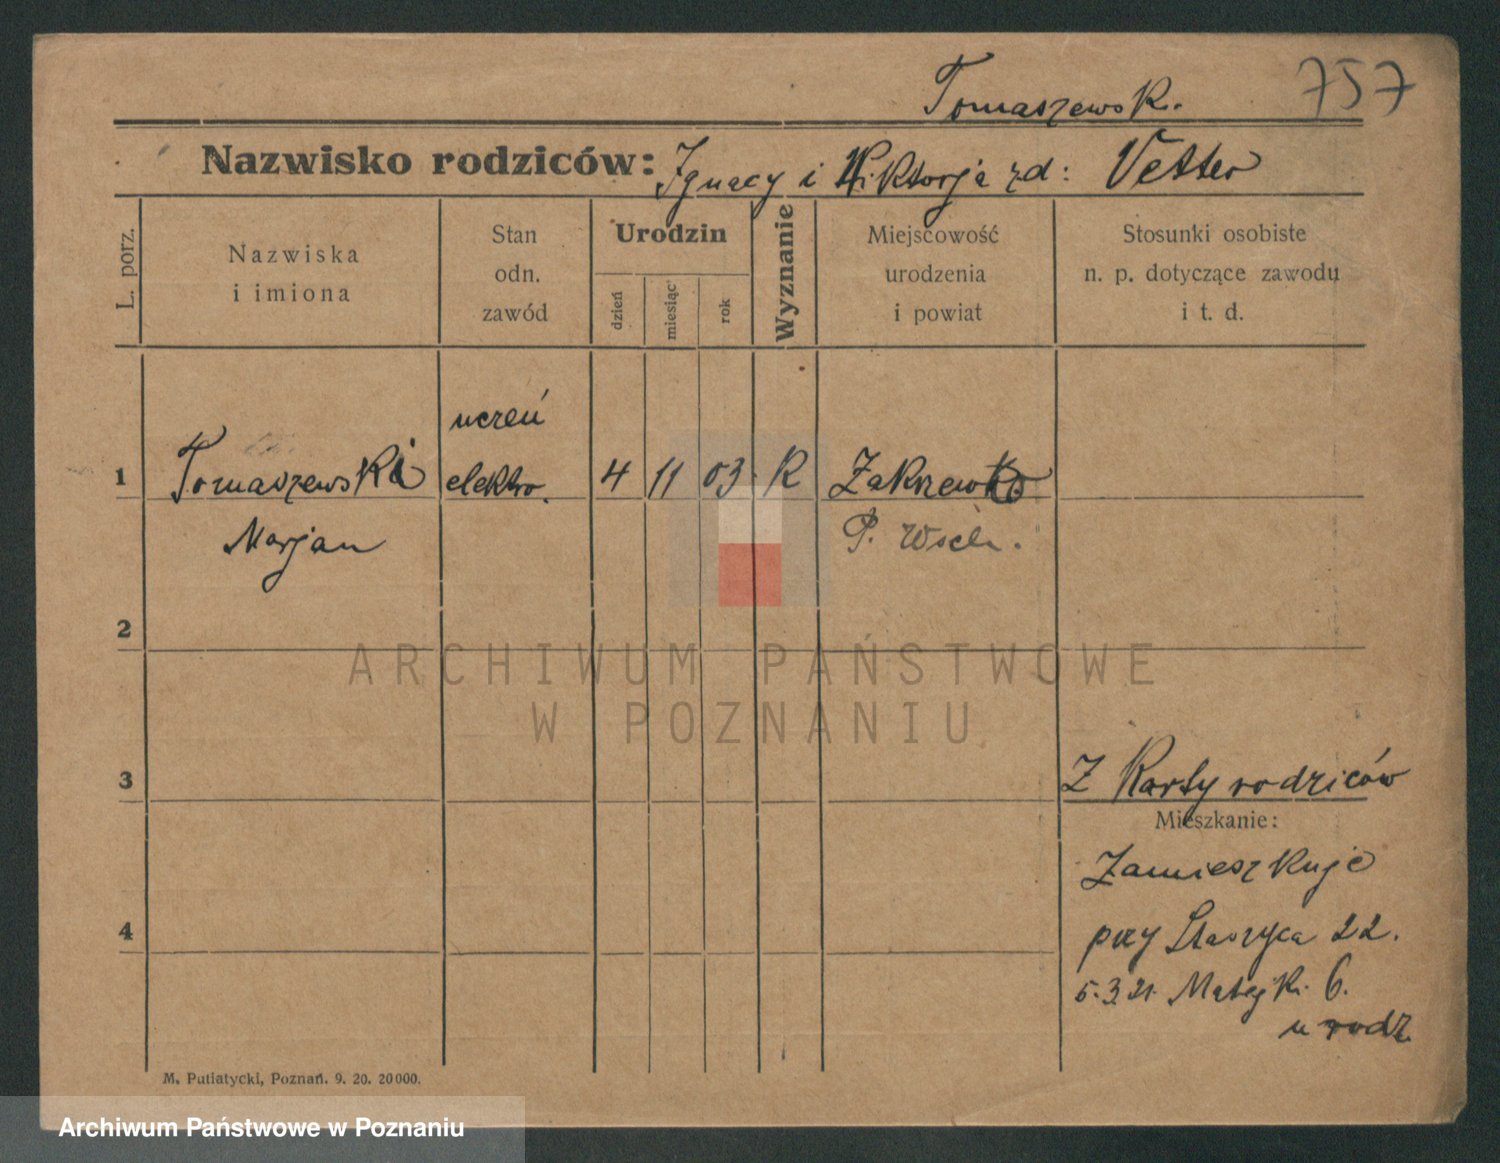 Tomaszewsk. 757
Nazwisko rodziców: Ignacy i Wiktorja zd: Vetter
L. porz.
Nazwiska
i imiona
Stan
odn.
zawód
Urodzin
dzień
miesiąc
rok
Wyznanie
Miejscowość
urodzenia
i powiat
Stosunki osobiste
n. p. dotyczące zawodu
i t. d.
uczeń
1 Tomaszewski elektro. 4 11 03. R Zakrzewko
Marjan P. Wsch.
2
3 Z Karty rodziców
Mieszkanie:
Zamieszkuje
4 przy Staszyca 22.
5.3.21. Matejki. 6.
u rodz.
M. Putiatycki, Poznań. 9. 20. 20000.
ARCHIWUM PAŃSTWOWE
W POZNANIU
Archiwum Państwowe w Poznaniu